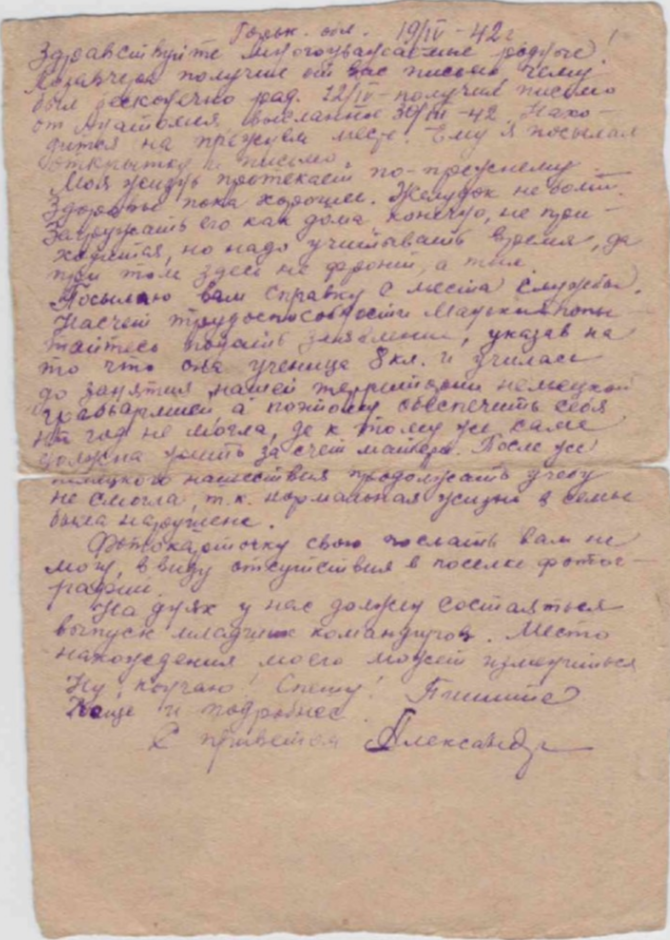 Горьк. обл. 19/IV-42 г
Здравствуйте многоуважаемые родные!
Позавчера получил от вас письмо чему
был бесконечно рад. 12/IV- получил письмо
от Анатолия, высланное 30/III-42. Нахо-
дится на прежнем месте. Ему я посылал
открытку и письмо.
Моя жизнь протекает по-прежнему.
Здоровье пока хорошее. Желудок не болит.
Загружать его как дома конечно, не при-
ходится, но надо учитывать время, да
при том здесь не фронт, а тыл.
Посылаю вам справку с места службы.
Насчет трудоспособности попы-
тайтесь подать заявление, указав на
то что она ученица 8 кл. и училась
до занятия нашей территории немецкой
а потому обеспечить себя
на год не могла, да к тому же сама
должна жить за счет матери. После же
немецкого нашествия продолжать учебу
не смогла, т.к. нормальная жизнь в семье
была нарушена.
Фотокарточку свою послать вам не
могу, ввиду отсутствия в поселке фотог-
рафии.
На днях у нас должен состояться
выпуск младших командиров. Место
нахождения моего может измениться
Ну, кончаю! Спешу! Пишите
чаще и подробнее.
С приветом Александр